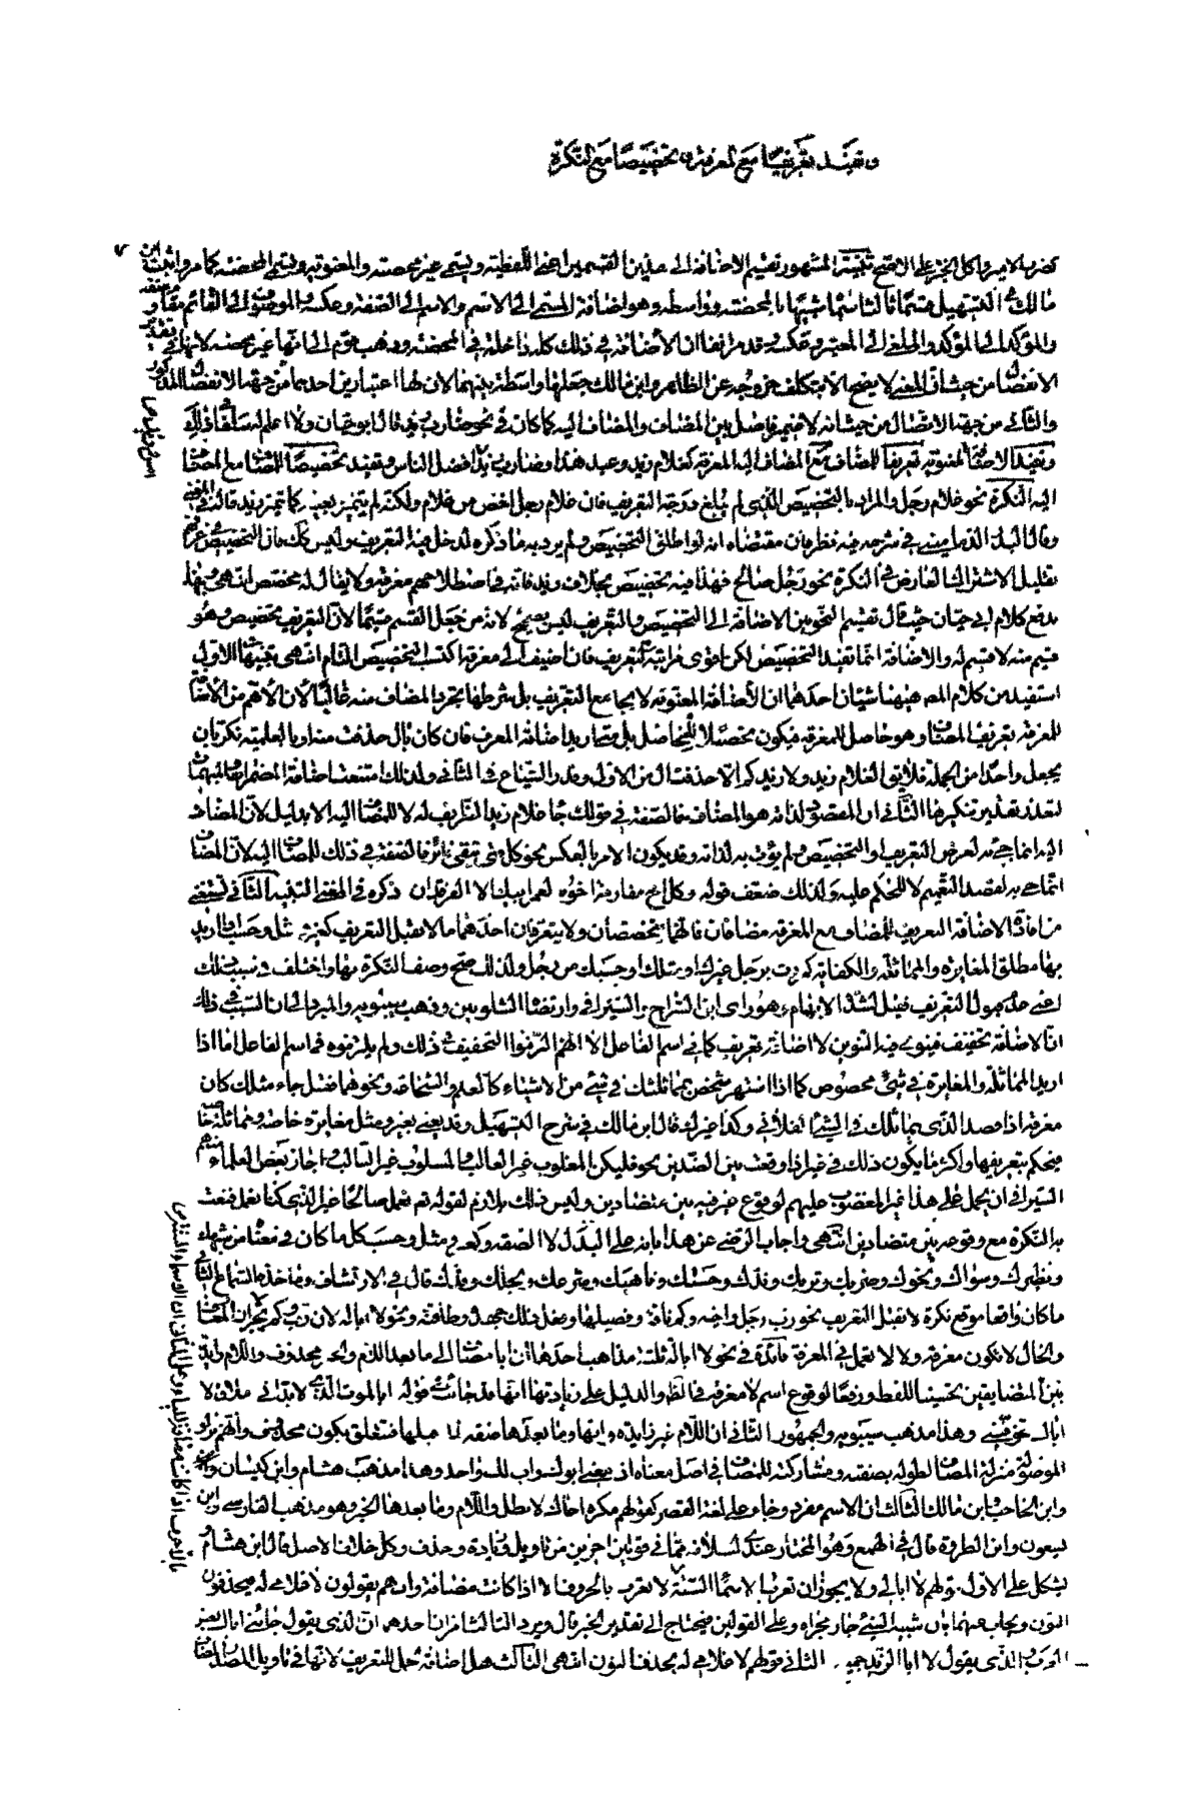 وتفيد تعريفا مع المعرفة وتخصيصا مع النكرة
كضرب الامير واكل الخبز على الاصح تنبيه المشهور تقسيم الاضافة الى هذين القسمين اعنى اللفظية وتسمى غير محضة والمعنوية وتسمى المحضة كما مر واثبت ابن
مالك فى التسهيل قسما ثالثا سماها شبيهة بالمحضة وواسطة وهو اضافة المسمى الى الاسم والاسم الى الصفة وعكسه والموصوف الى القائم مقام
والمؤكد الى المؤكد والملغى الى المعتبر وعكسه قد مر انفا ان الاضافة فى ذلك كله داخلة فى المحضة وذهب قوم الى انها غير محضة لانها فى
الانفصال من حيث ان المعنى لا يصح الا بتكلف خروجه عن الظاهر وابن مالك جعلها واسطة بينهما لان لها اعتبارين احدهما من جهة الانفصال
والثانى من جهة الاتصال من حيث انه لا ضمير فاصل بين المضاف والمضاف اليه كما كان فى نحو ضارب زيد قال ابو حيان ولا اعلم له سلفا فى ذلك
وتفيد الاضافة المعنوية تعريفا للمضاف مع المضاف اليه المعرفة كغلام زيد وعبد هذا وضارب زيد افضل الناس وتفيد تخصيصا للمضاف مع المضاف
اليه النكرة نحو غلام رجل والمراد بالتخصيص الذى لم يبلغ درجة التعريف فان غلام رجل اخص من غلام ولكنه لم يتميز بعينه كما تميز زيد قاله فى المغنى
وقال البدر الدمامينى فى شرحه فيه نظر فان مقتضاه انه لو اطلق التخصيص ولم يرد به ما ذكره لدخل فيه التعريف وليس كذلك فان التخصيص فى عرفهم
تقليل الاشتراك العارض فى النكرة نحو رجل صالح فهذا فيه تخصيص بخلاف زيد فانه فى اصطلاحهم معرفة ولا يقال له مختص انتهى وبهذا
يدفع كلام ابى حيان حيث قال تقسيم النحويين الاضافة الى التخصيص والتعريف ليس بصحيح لانه من جعل القسم قسيما لان التعريف تخصيص وهو
قسم منه لا قسيم له والاضافة انما تفيد التخصيص لكن اقوى مراتبه التعريف فان اضيف الى معرفة اكتسب التخصيص التام انتهى تنبيهات الاول
استفيد من كلام المصـ هنا شيئان احدهما ان الاضافة المعنوية لا تجامع التعريف بل شرطها تجرد المضاف منه غالبا لان الاهم من الاضافة
للمعرفة تعريف المضاف وهو حاصل للمعرفة فيكون تحصيلا للحاصل بل متى اريد اضافة المعرف فان كان بال حذفت منه او بالعلمية نكر بان
يجعل واحدا من الجملة فلا يقال الغلام زيد ولا زيدكم الا حذفت ال من الاول وقدر الشياع فى الثانى ولذلك امتنعت اضافة المضمرات والمبهمات
لتعذر تقدير تنكيرها الثانى ان المقصود لذاته هو المضاف فالصفة فى قولك جاء غلام زيد الظريف له لا للمضاف اليه الا بدليل لان المضاف
اليه انما جئ به لغرض التعريف او التخصيص ولم يؤت به لذاته وقد يكون الامر بالعكس نحو كل فتى يتقى فائز فالصفة فى ذلك للمضاف اليه لان المضاف
انما جئ به لقصد التعميم لا للحكم عليه ولذلك ضعف قوله وكل اخ مفارقه اخوه لعمر ابيك الا الفرقدان ذكره فى المغنى التنبيه الثانى استثنى
من افادة الاضافة التعريف للمضاف مع المعرفة مضافان فانهما يتخصصان ولا يتعرفان احدهما ما لا يقبل التعريف كغير ومثل وحسب اذا اريد
بها مطلق المغايرة والمماثلة والكفاية كمررت برجل غيرك او مثلك او حسبك من رجل ولذلك صح وصف النكرة بها واختلف فى سبب ذلك
اعنى عدم قبول التعريف فقيل لشدة الابهام وهو راى ابن السراج والسيرافى وارتضاه الشلوبين وذهب سيبويه والمبرد الى ان السبب فى ذلك
ان الاضافة تخفيف فينوى فيه التنوين لا اضافة تعريف كما فى اسم الفاعل الا انهم التزموا التخفيف فى ذلك ولم يلتزموه فى اسم الفاعل اما اذا
اريد المماثلة والمغايرة فى شئ مخصوص كما اذا اشتهر شخص بمماثلتك فى شئ من الاشياء كالعلم والشجاعة ونحوهما فقيل جاء مثلك كان
معرفة اذا قصد الذى يماثلك فى الشئ الفلانى وكذا غيرك قال ابن مالك فى شرح التسهيل وقد يعنى بغير ومثل مغايرة خاصة ومماثلة خاصة
فيحكم بتعريفها واكثر ما يكون ذلك فى غير اذا وقعت بين الضدين نحو فليكن المغلوب غير الغالب والمسلوب غير السالب واجاز بعض العلماء منهم
السيرافى ان يحمل على هذا غير المغضوب عليهم لوقوع غير فيه بين متضادين وليس ذلك بلازم لقوله تعالى نعمل صالحا غير الذى كنا نعمل فنعت
به النكرة مع وقوعه بين متضادين انتهى واجاب الرضى عن هذا بانه على البدل لا الصفة وكغير ومثل وحسب كل ما كان فى معناها من شبهك
ونظيرك وسواك ونحوك وضربك وتربك وندك وحسبك وناهيك وشرعك وبجلك وقدك قال فى الارتشاف وماخذه السماع الثانى
ما كان واقعا موقع نكرة لا تقبل التعريف نحو رب رجل واخيه وكم ناقة وفصيلها وفعل ذلك جهده وطاقته ونحو لا ابا له لان رب وكم لا يجران المعارف
والحال لا تكون معرفة ولا لا تعمل فى المعرفة فائدة فى نحو لا ابا له ثلاثة مذاهب احدها ان ابا مضاف الى ما بعد اللام والخبر محذوف واللام زايدة
بين المضايفين تحسينا للفظ ورفعا لوقوع اسم لا معرفة فى الظاهر والدليل على زيادتها انها قد جاءت فى قوله ابالموت الذى لا بد انى ملاق لا
اباك تخوفينى وهذا مذهب سيبويه والجمهور الثانى ان اللام غير زايدة وانها وما بعدها صفة لما قبلها فتتعلق بكون محذوف وانهم نزلوا
الموصوف منزلة المضاف لطوله بصفته ومشاركته للمضاف فى اصل معناه اذ معنى ابوك واب لك واحد وهذا مذهب هشام وابن كيسان
وابن الحاجب وابن مالك الثالث ان الاسم مفرد وجاء على لغة القصر كقولهم مكره اخاك لا بطل واللام وما بعدها الخبر وهو مذهب الفارسى وابن
يسعون وابن الطراوة قال فى الهمع وهو المختار عندى لسلامته مما فى قولين اخرين من تاويل وزيادة وحذف وكل خلاف الاصل قال ابن هشام
يشكل على الاول قولهم لا ابا لى ولا يجوز ان تعرب الاسماء الستة بالحروف الا اذا كانت مضافة وانهم يقولون لا غلامى له فيحذفون
النون ويجاب عنهما بان شبيه الشئ جار مجراه وعلى القولين فيحتاج الى تقدير الخبر قال ويرد الثالث امران احدهما ان الذى يقول جاءنى اباك بعض
العرب والذى يقول لا ابا لزيد جميعهم الثانى قولهم لا غلامى له بحذف النون انتهى الثالث هل اضافة الجمل للتعريف لانها فى تاويل المصدر المضاف